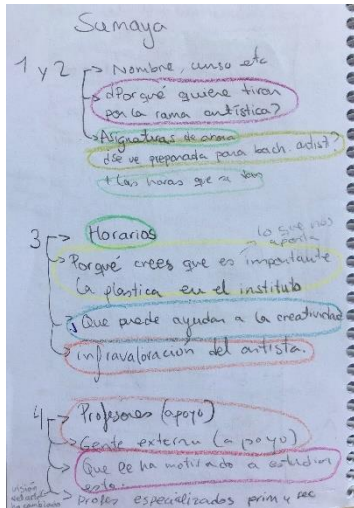 Sumaya
1 y 2
Nombre, curso etc
¿Porqué quiere tirar
por la rama artística?
Asignaturas de ahora
¿Se ve preparada para bach. artist?
+ las horas que se dan
3
Horarios
lo que más
aporta
Porqué crees que es importante
la plastica en el instituto
Que puede ayudar a la creatividad
infravaloración del artista.
4
Profesores (apoyo)
Gente externa (apoyo)
Que le ha motivado a estudiar
esto.
Profes especializados prim y sec
visión